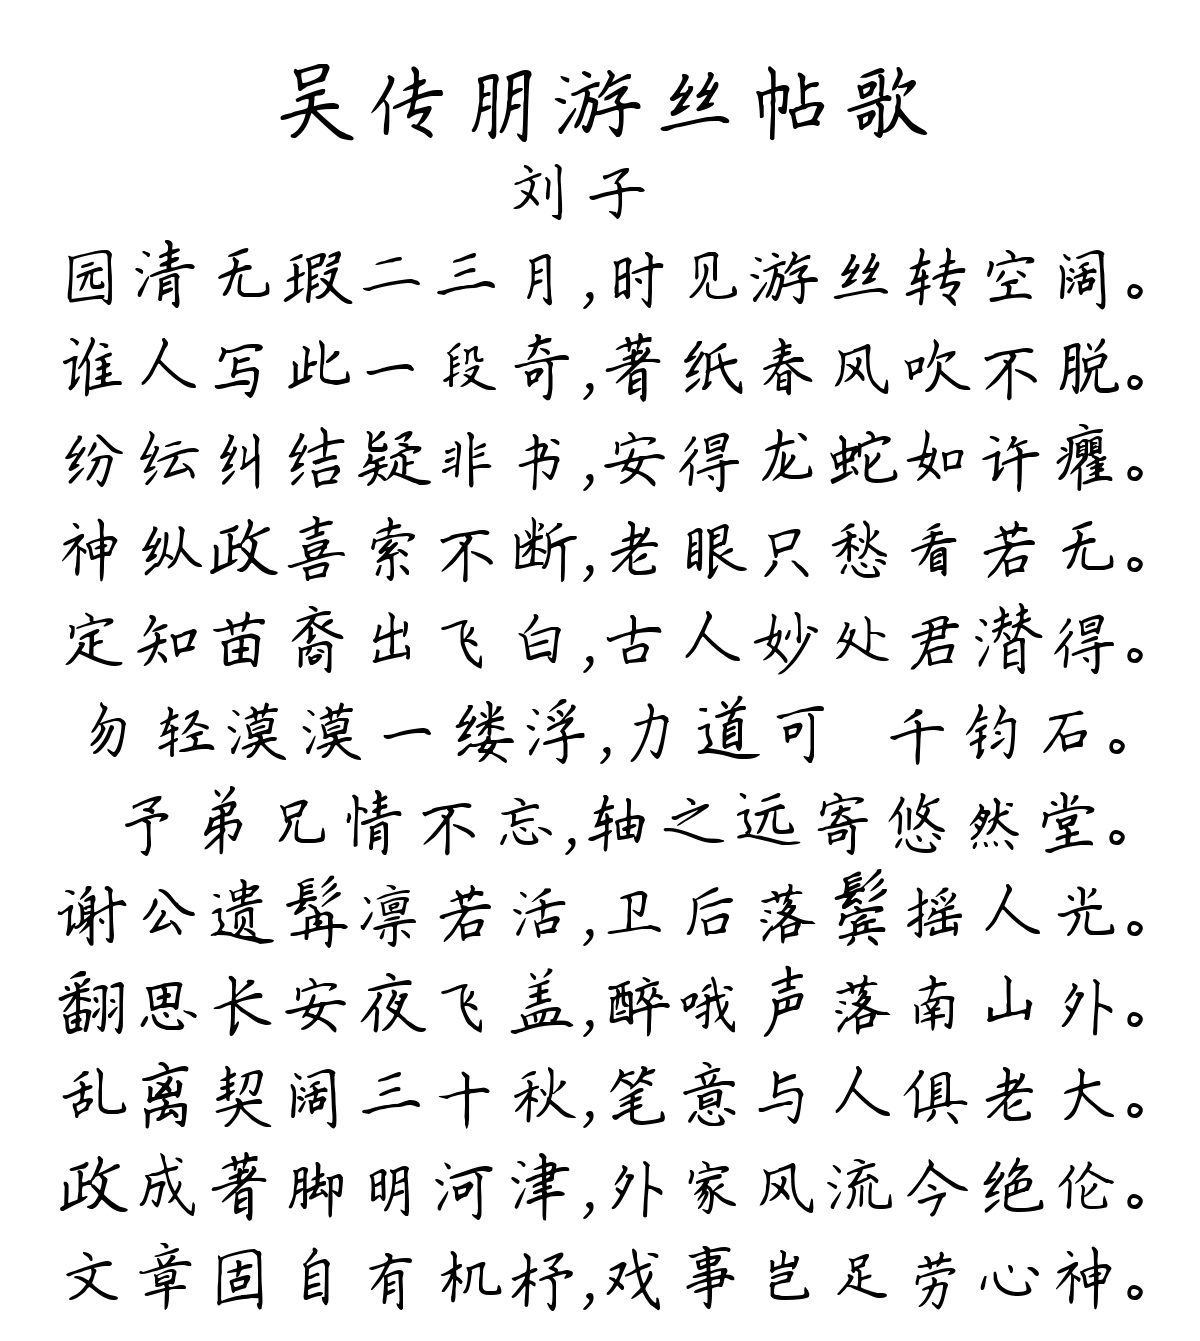 吴传朋游丝帖歌
刘子
园清无瑕二三月,时见游丝转空阔。
谁人写此一段奇,著纸春风吹不脱。
纷纭纠结疑非书,安得龙蛇如许癯。
神纵政喜索不断,老眼只愁看若无。
定知苗裔出飞白,古人妙处君潜得。
勿轻漠漠一缕浮,力道可 千钧石。
予弟兄情不忘,轴之远寄悠然堂。
谢公遗髯凛若活,卫后落鬓摇人光。
翻思长安夜飞盖,醉哦声落南山外。
乱离契阔三十秋,笔意与人俱老大。
政成著脚明河津,外家风流今绝伦。
文章固自有机杼,戏事岂足劳心神。